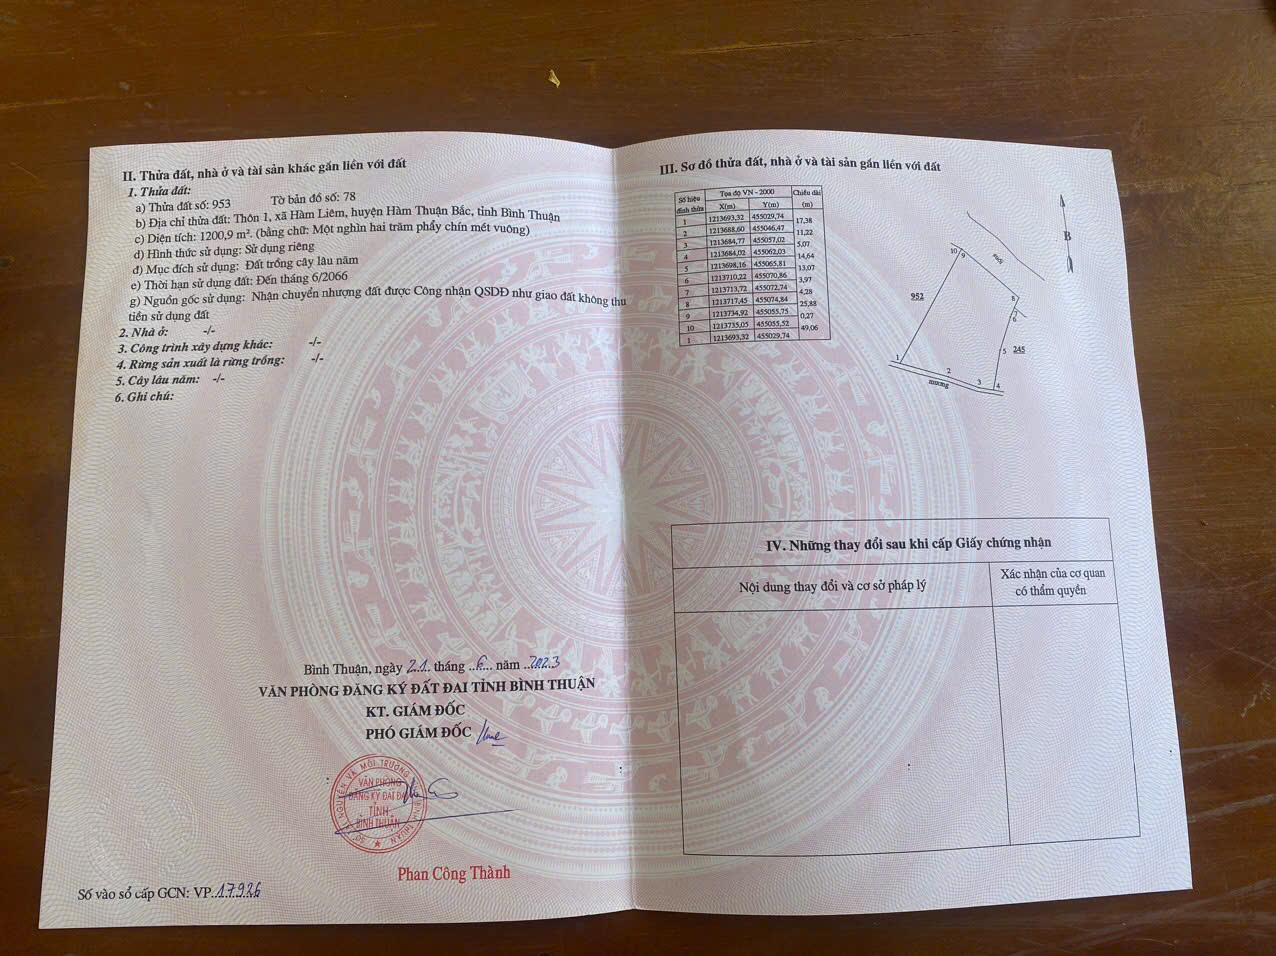 II. Thửa đất, nhà ở và tài sản khác gắn liền với đất
1. Thửa đất:
a) Thửa đất số: 953 Tờ bản đồ số: 78
b) Địa chỉ thửa đất: Thôn 1, xã Hàm Liêm, huyện Hàm Thuận Bắc, tỉnh Bình Thuận
c) Diện tích: 1200,9 m². (bằng chữ: Một nghìn hai trăm phẩy chín mét vuông)
d) Hình thức sử dụng: Sử dụng riêng
đ) Mục đích sử dụng: Đất trồng cây lâu năm
e) Thời hạn sử dụng đất: Đến tháng 6/2066
g) Nguồn gốc sử dụng: Nhận chuyển nhượng đất được Công nhận QSDĐ như giao đất không thu
tiền sử dụng đất
2. Nhà ở: -/-
3. Công trình xây dựng khác: -/-
4. Rừng sản xuất là rừng trồng: -/-
5. Cây lâu năm: -/-
6. Ghi chú:
Bình Thuận, ngày 21 tháng 6 năm 2023
VĂN PHÒNG ĐĂNG KÝ ĐẤT ĐAI TỈNH BÌNH THUẬN
KT. GIÁM ĐỐC
PHÓ GIÁM ĐỐC
VĂN PHÒNG
ĐĂNG KÝ ĐẤT ĐAI
TỈNH
BÌNH THUẬN
Phan Công Thành
Số vào sổ cấp GCN: VP.17926
III. Sơ đồ thửa đất, nhà ở và tài sản gắn liền với đất
Số hiệu đỉnh thửa Tọa độ VN - 2000 Chiều dài (m)
X(m) Y(m)
1 1213693,32 455029,74
17,38
2 1213688,60 455046,47
11,22
3 1213684,77 455057,02
5,07
4 1213684,02 455062,03
14,64
5 1213698,16 455065,81
13,07
6 1213710,22 455070,86
3,97
7 1213713,72 455072,74
4,28
8 1213717,45 455074,84
25,88
9 1213734,92 455055,75
0,27
10 1213735,05 455055,52
49,06
1 1213693,32 455029,74
B
10
9
952
8
7
6
5
245
1
2
3
4
mương
IV. Những thay đổi sau khi cấp Giấy chứng nhận
Nội dung thay đổi và cơ sở pháp lý
Xác nhận của cơ quan
có thẩm quyền